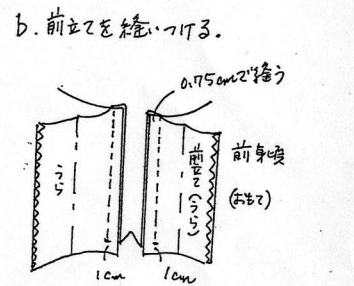 b.前立てを縫いつける。
0.75cmで縫う
うら
前立て(うら)
前身頃
(おもて)
1cm
1cm